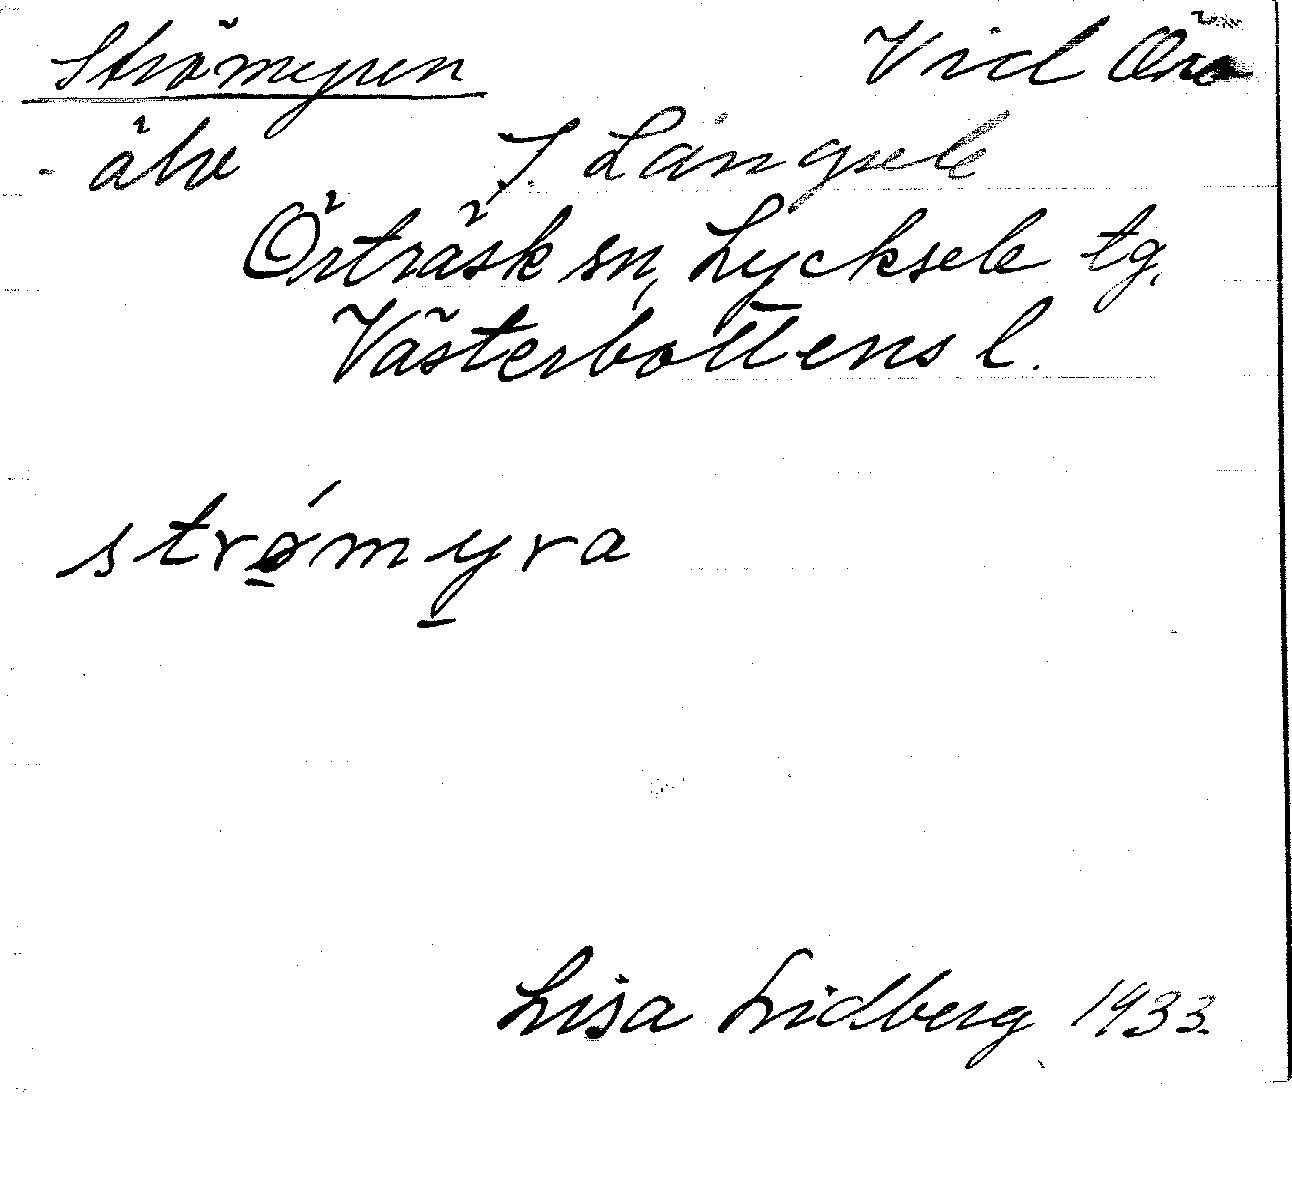 Strömyren Vid Öre
- älv J. Långsele
Örträsk sn, Lycksele tg.
Västerbottens l.
strǿmyra
Lisa Lidberg 1933